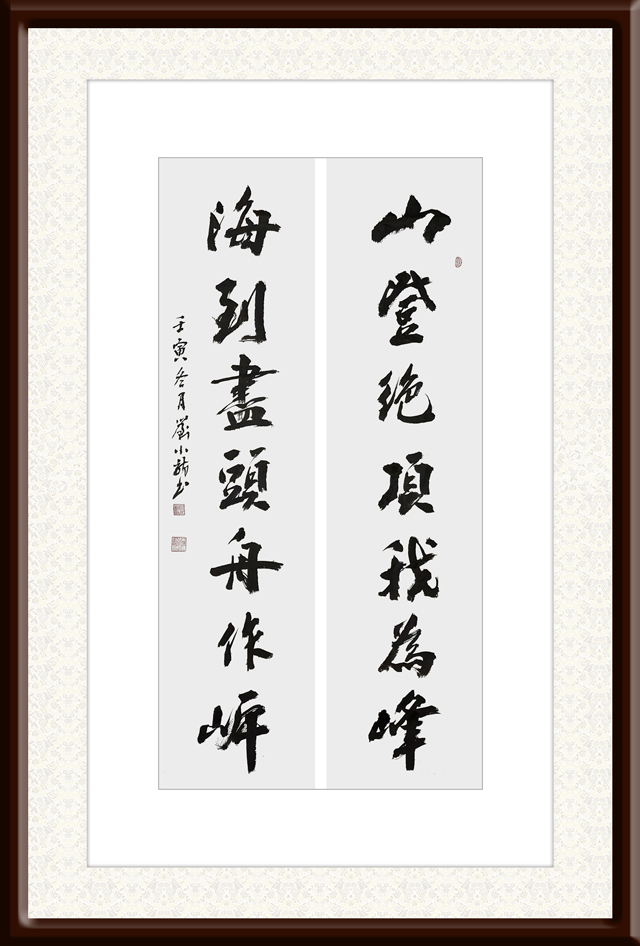 山登绝项我為峰
海到盡頭舟作岸
壬寅冬月劉小龍书